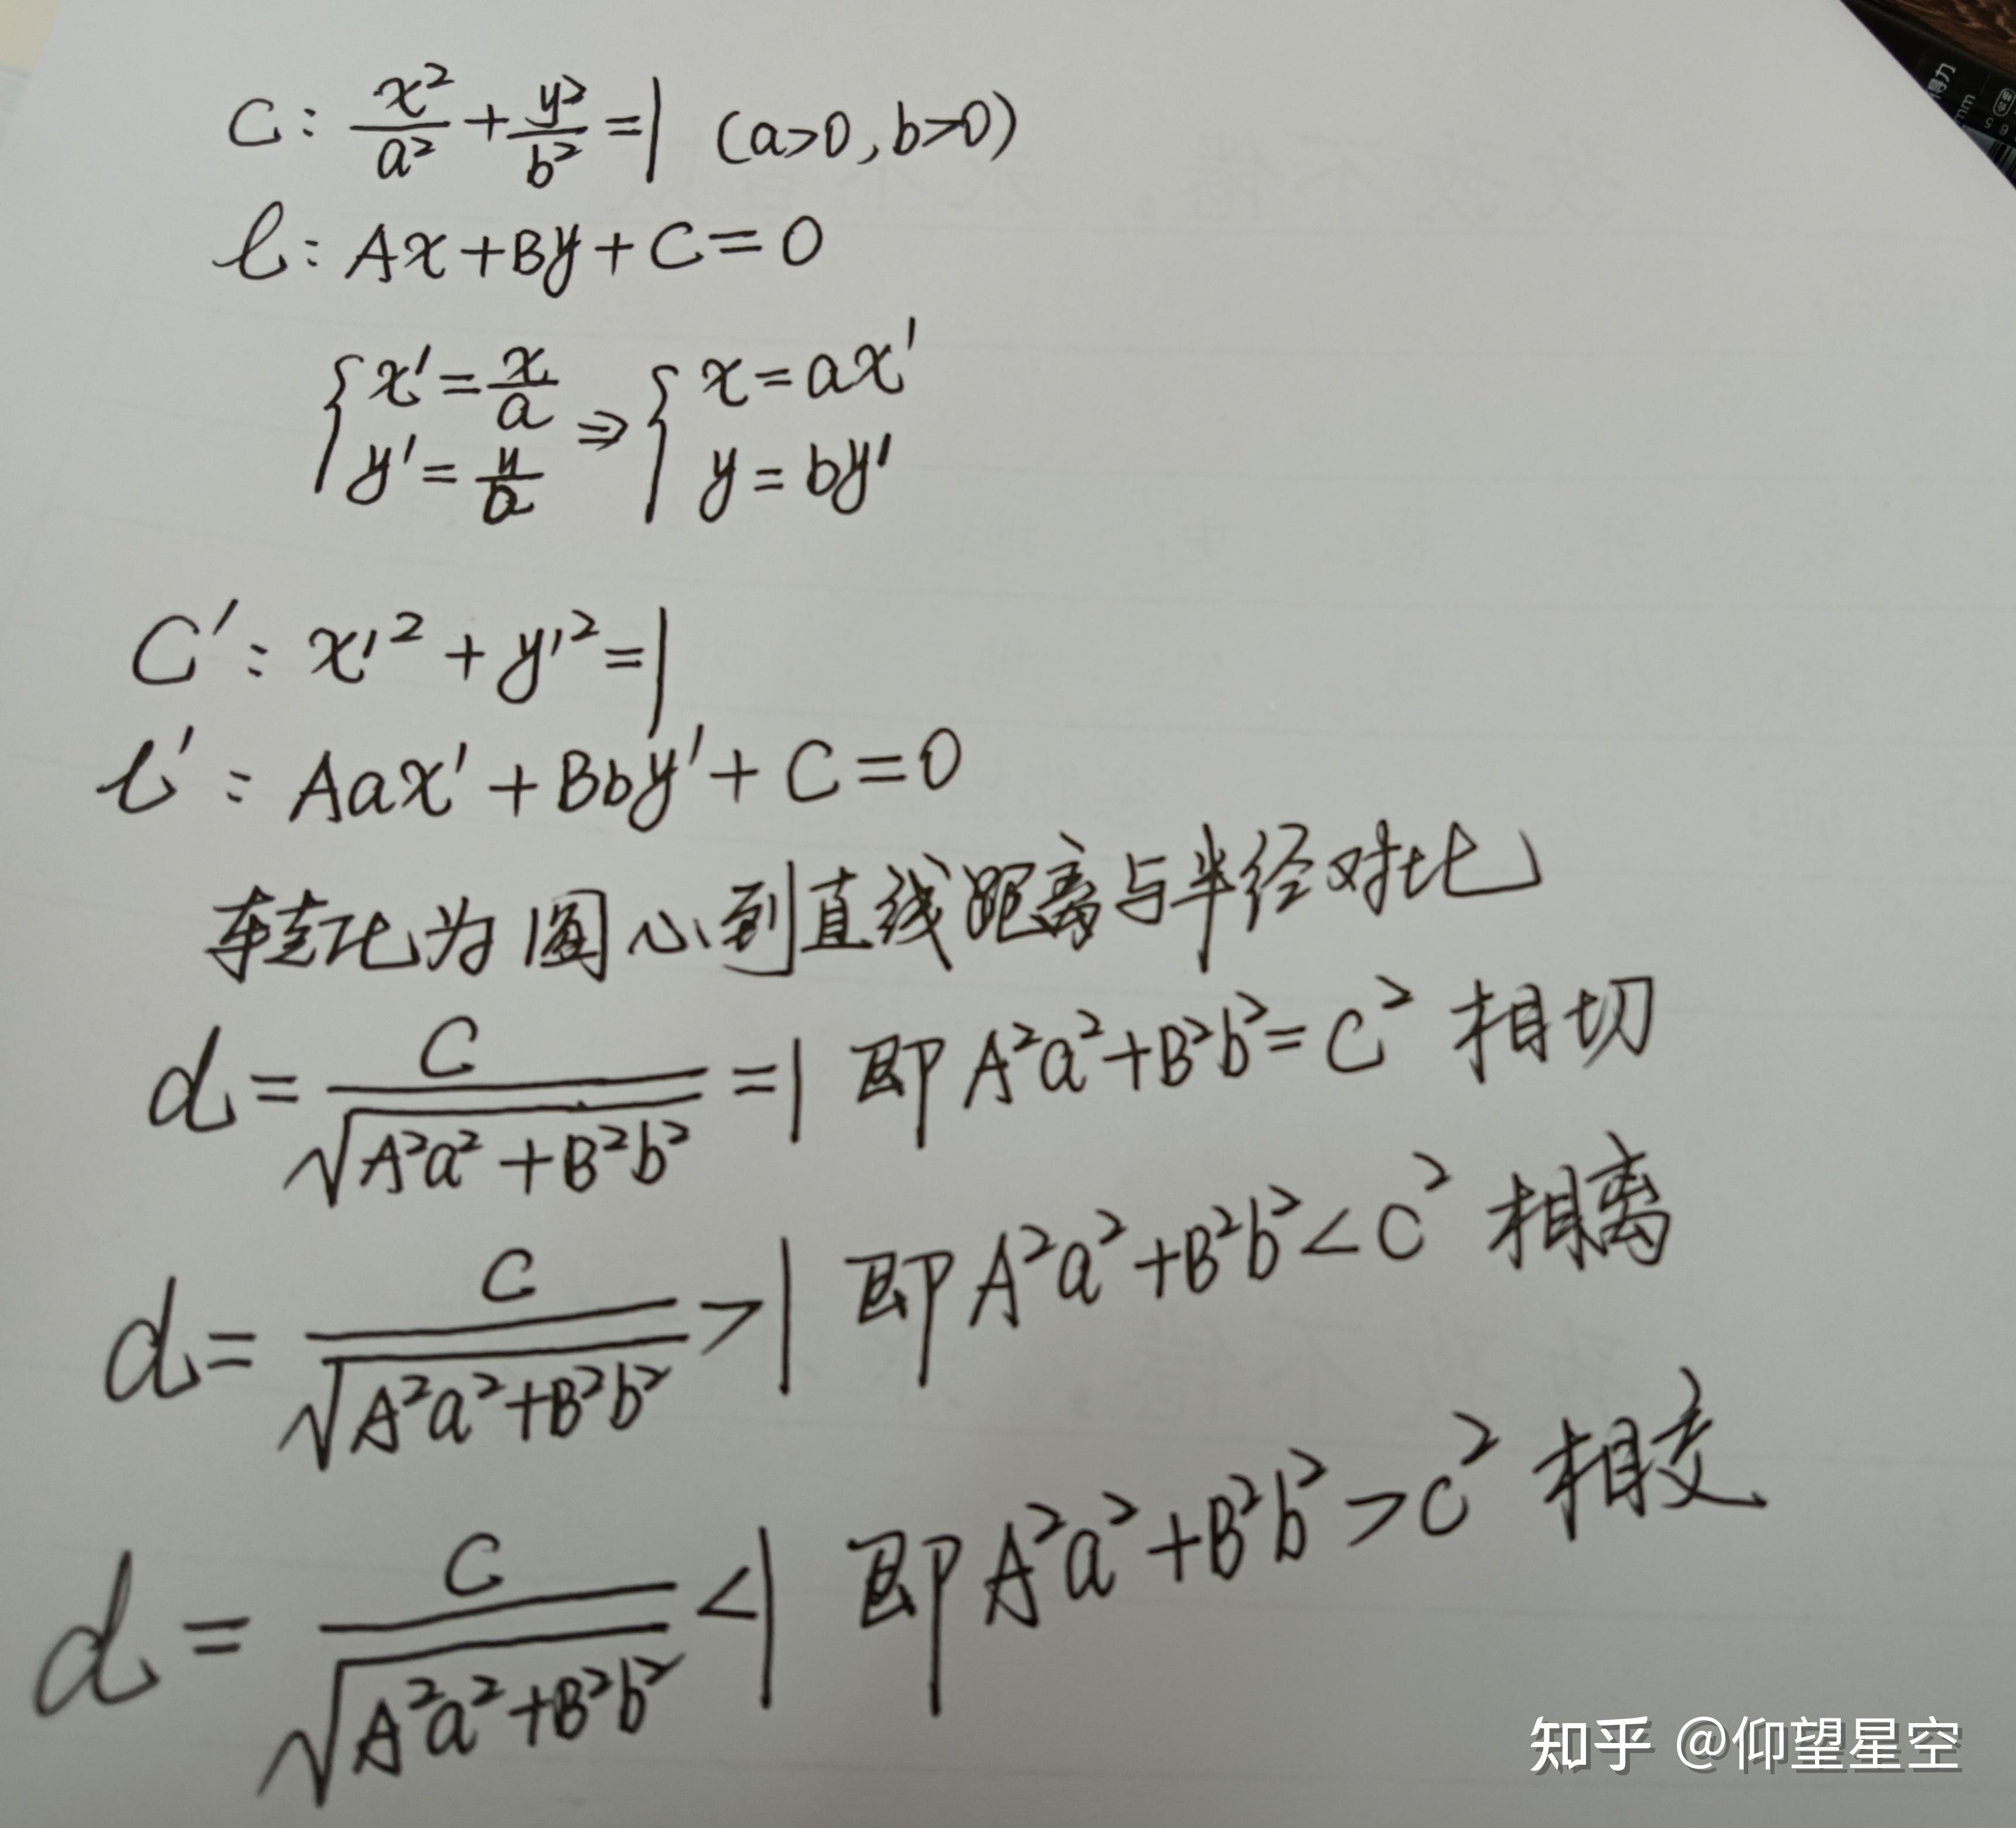 C: x²/a² + y²/b² = 1 (a>0, b>0)
l: Ax + By + C = 0
{ x' = x/a ⇒ { x = ax'
{ y' = y/b ⇒ { y = by'
C': x'² + y'² = 1
l': Aax' + Bby' + C = 0
转化为圆心到直线距离与半径对比
d = C/√(A²a² + B²b²) = 1 即 A²a² + B²b² = C² 相切
d = C/√(A²a² + B²b²) > 1 即 A²a² + B²b² < C² 相离
d = C/√(A²a² + B²b²) < 1 即 A²a² + B²b² > C² 相交
知乎 @仰望星空